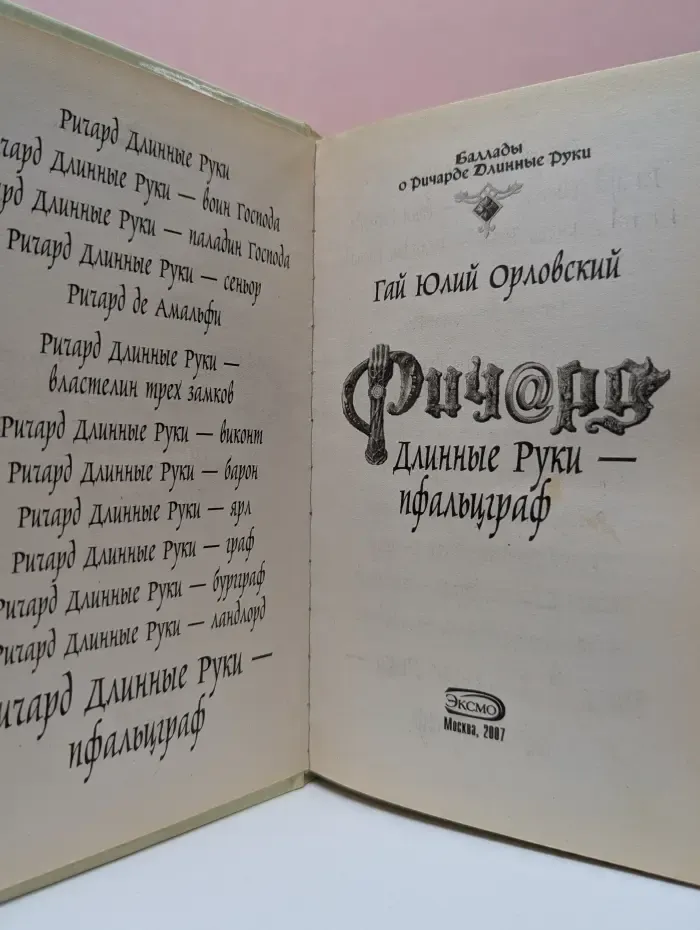 Ричард Длинные Руки
чард Длинные Руки — воин Господа
рд Длинные Руки — паладин Господа
Ричард Длинные Руки — сеньор
Ричард де Амальфи
Ричард Длинные Руки —
властелин трех замков
Ричард Длинные Руки — виконт
Ричард Длинные Руки — барон
Ричард Длинные Руки — ярл
Ричард Длинные Руки — граф
Ричард Длинные Руки — бургграф
Ричард Длинные Руки — ландлорд
ичард Длинные Руки —
пфальцграф
Баллады
о Ричарде Длинные Руки
Гай Юлий Орловский
Рич@рд
Длинные Руки —
пфальцграф
ЭКСМО
Москва, 2007